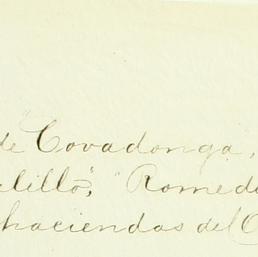 de Covadonga,
lillo", "Romed
haciendas del